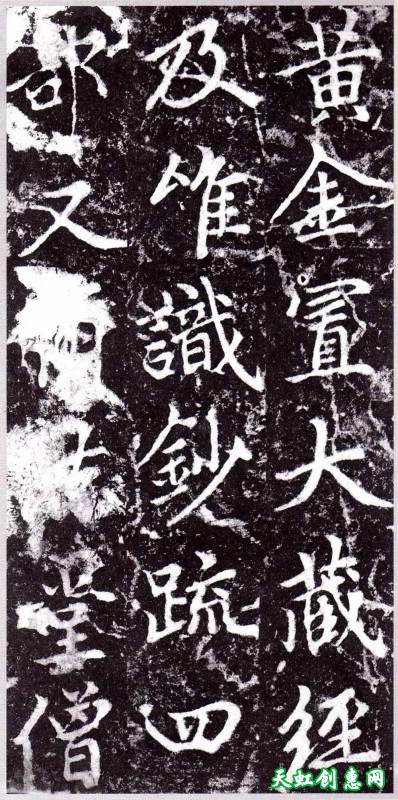 黄金置大藏經
及唯識鈔疏四
部又堂僧
天虹创惠网